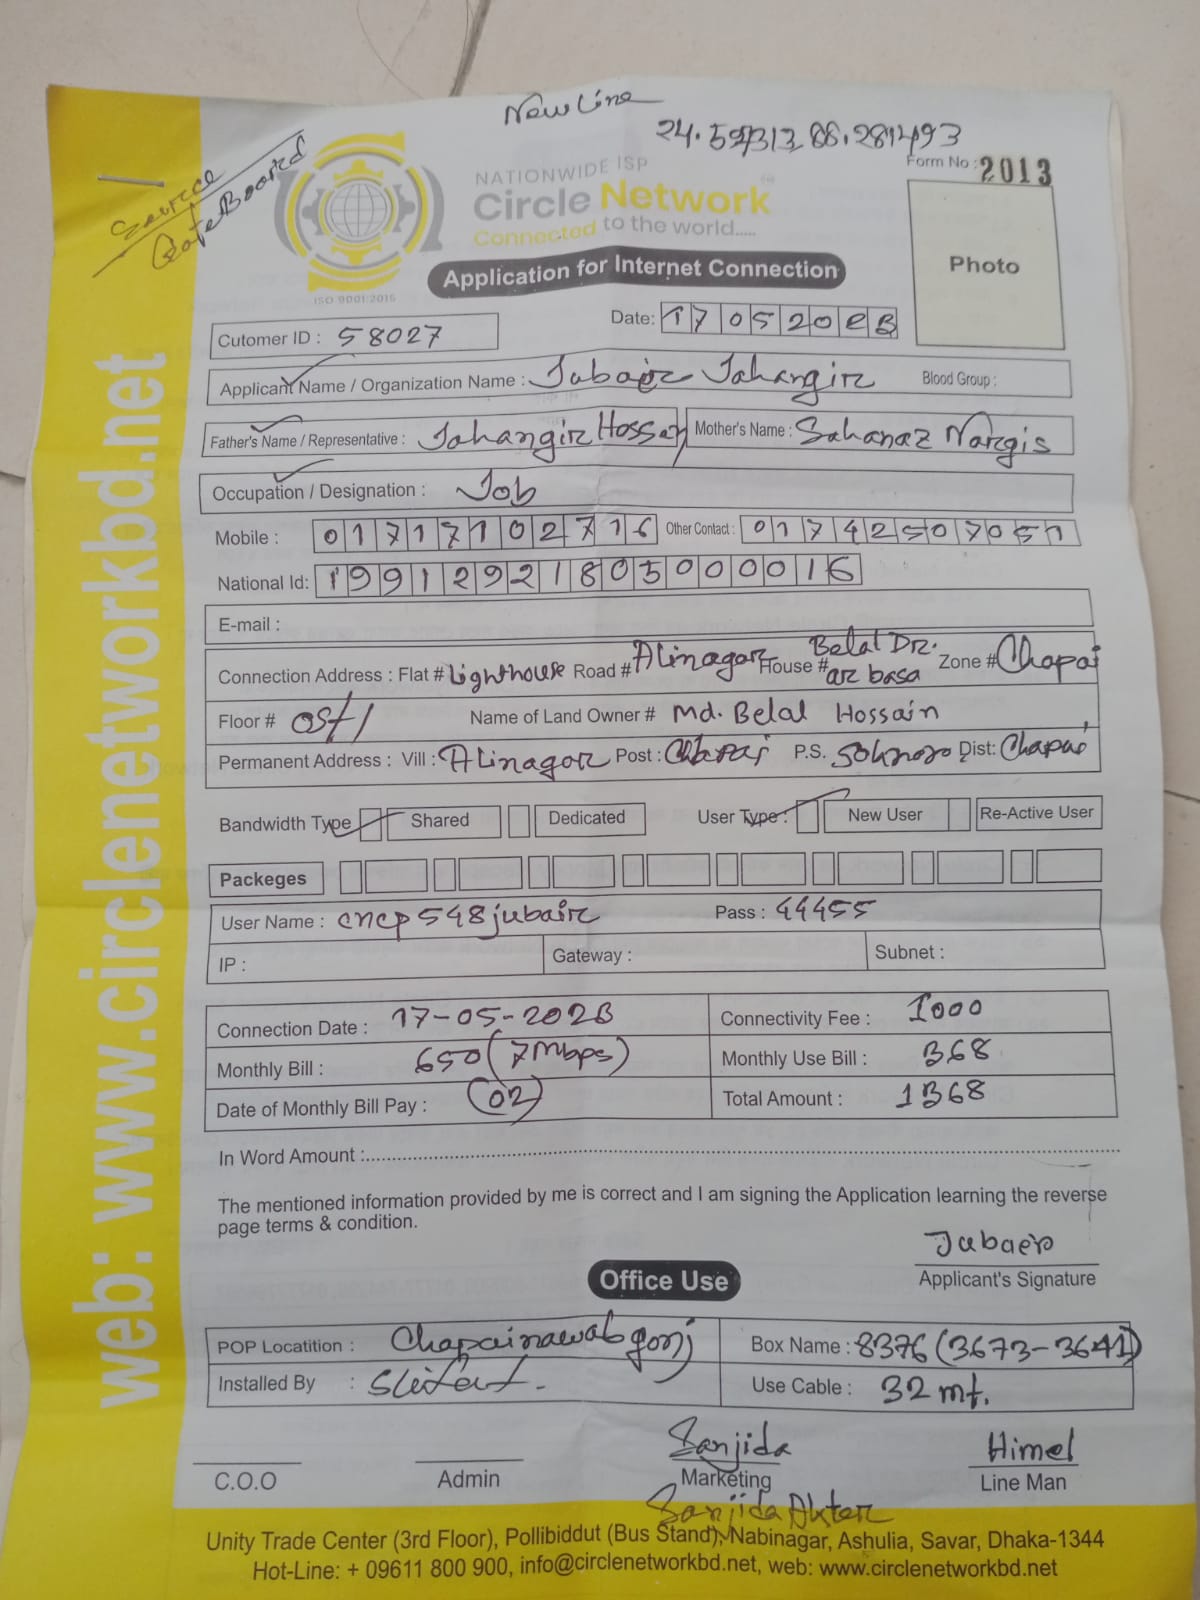 New Line
Form No : 2013
Source
NATIONWIDE ISP
Circle Network
Connected to the world.....
ISO 9001:2015
Application for Internet Connection
Photo
Cutomer ID : 58027
Date: 17052023
Applicant Name / Organization Name : Jubaer Jahangir Blood Group :
Father's Name / Representative : Jahangir Hossen Mother's Name : Sahanaz Nargis
Occupation / Designation : Job
Mobile : 01717102716 Other Contact : 01742507051
National Id: 19912921805000016
E-mail :
Connection Address : Flat # Lighthouse Road # Alinagor House # Belal Dr. ar basa Zone # Chapai
Floor # Name of Land Owner # Md. Belal Hossain
Permanent Address : Vill : Alinagor Post : Chapai P.S. Dist: Chapai
Bandwidth Type Shared Dedicated User Type : New User Re-Active User
Packeges
User Name : cncp548jubair Pass : 44455
IP : Gateway : Subnet :
Connection Date : 17-05-2023 Connectivity Fee : 1000
Monthly Bill : 650 (7Mbps) Monthly Use Bill : 368
Date of Monthly Bill Pay : (02) Total Amount : 1368
In Word Amount :
The mentioned information provided by me is correct and I am signing the Application learning the reverse
page terms & condition.
Jubaer
Applicant's Signature
Office Use
POP Locatition : Chapainawabgonj Box Name : 8376 (3673-3641)
Installed By : Use Cable : 32 mt.
Sanjida Himel
C.O.O Admin Marketing Line Man
Sanjida Akter
Unity Trade Center (3rd Floor), Pollibiddut (Bus Stand), Nabinagar, Ashulia, Savar, Dhaka-1344
Hot-Line: + 09611 800 900, info@circlenetworkbd.net, web: www.circlenetworkbd.net
web: www.circlenetworkbd.net